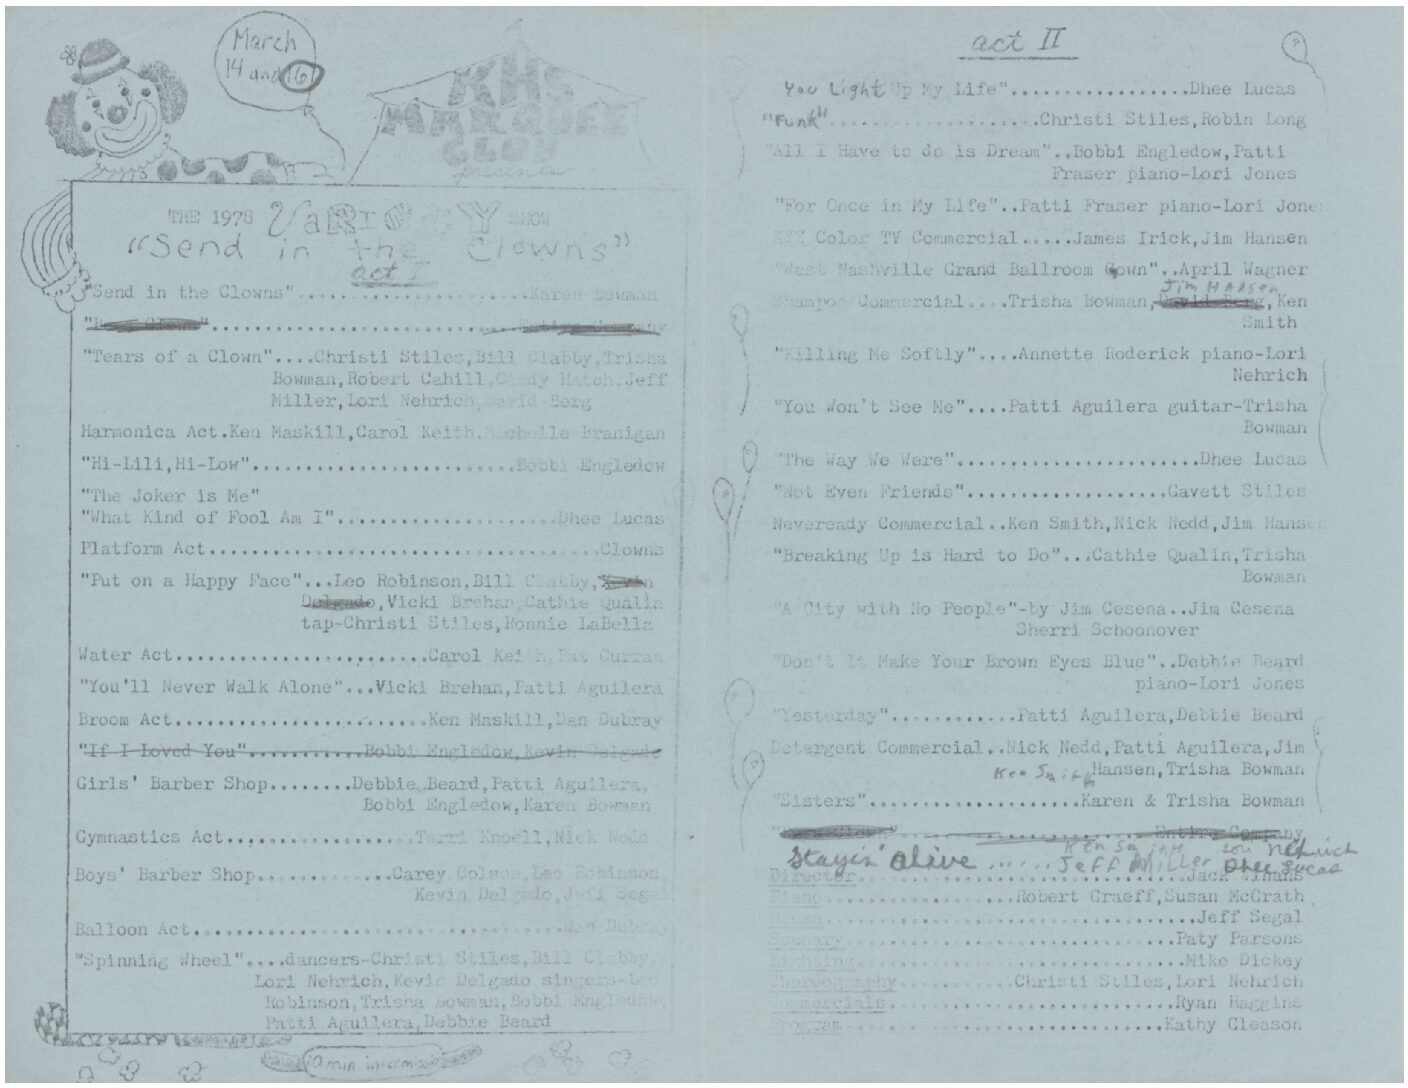 March
14 and 16
KHS
MARQUEE
CLUB
presents
THE 1978 VARIETY SHOW
"Send in the Clowns"
act I
"Send in the Clowns"......................Karen Bowman
"Tears of a Clown"....Christi Stiles,Bill Clabby,Trisha
Bowman,Robert Cahill,Cindy Hatch,Jeff
Miller,Lori Nehrich,David Berg
Harmonica Act.Ken Maskill,Carol Keith,Michelle Branigan
"Hi-Lili,Hi-Low".........................Bobbi Engledow
"The Joker is Me"
"What Kind of Fool Am I".....................Dhee Lucas
Platform Act....................................Clowns
"Put on a Happy Face"...Leo Robinson,Bill Clabby,Kevin
Delgado,Vicki Brehan,Cathie Qualin
tap-Christi Stiles,Ronnie LaBella
Water Act.......................Carol Keith,Pat Curran
"You'll Never Walk Alone"...Vicki Brehan,Patti Aguilera
Broom Act.......................Ken Maskill,Dan Dubray
"If I Loved You"...........Bobbi Engledow,Kevin Delgado
Girls' Barber Shop........Debbie Beard,Patti Aguilera,
Bobbi Engledow,Karen Bowman
Gymnastics Act.................Terri Knoell,Nick Nedd
Boys' Barber Shop.............Carey Colson,Leo Robinson,
Kevin Delgado,Jeff Segal
Balloon Act..................................Dan Dubray
"Spinning Wheel"....dancers-Christi Stiles,Bill Clabby,
Lori Nehrich,Kevin Delgado singers-Leo
Robinson,Trisha Bowman,Bobbi Engledow,
Patti Aguilera,Debbie Beard
10 min. intermission
act II
You Light Up My Life".................Dhee Lucas
"Funk"....................Christi Stiles,Robin Long
"All I Have to do is Dream"..Bobbi Engledow,Patti
Fraser piano-Lori Jones
"For Once in My Life"..Patti Fraser piano-Lori Jones
XYZ Color TV Commercial.....James Irick,Jim Hansen
"West Nashville Grand Ballroom Gown"..April Wagner
Jim Hansen
Shampoo Commercial....Trisha Bowman,David Berg,Ken
Smith
"Killing Me Softly"....Annette Roderick piano-Lori
Nehrich
"You Won't See Me"....Patti Aguilera guitar-Trisha
Bowman
"The Way We Were".......................Dhee Lucas
"Not Even Friends"...................Gavett Stiles
Neveready Commercial..Ken Smith,Nick Nedd,Jim Hansen
"Breaking Up is Hard to Do"...Cathie Qualin,Trisha
Bowman
"A City with No People"-by Jim Cesena..Jim Cesena
Sherri Schoonover
"Don't It Make Your Brown Eyes Blue"..Debbie Beard
piano-Lori Jones
"Yesterday"............Patti Aguilera,Debbie Beard
Detergent Commercial..Nick Nedd,Patti Aguilera,Jim
Ken Smith Hansen,Trisha Bowman
"Sisters"....................Karen & Trisha Bowman
Entire Company
Ken Smith Lori Nehrich
Stayin' Alive ...... Jeff Miller Dhee Lucas
Director...............................Jack
Piano..................Robert Graeff,Susan McGrath
Drums...................................Jeff Segal
Scenary................................Paty Parsons
Lighting...............................Mike Dickey
Choreography...........Christi Stiles,Lori Nehrich
Commercials...........................Ryan Haggins
Program..............................Kathy Gleason